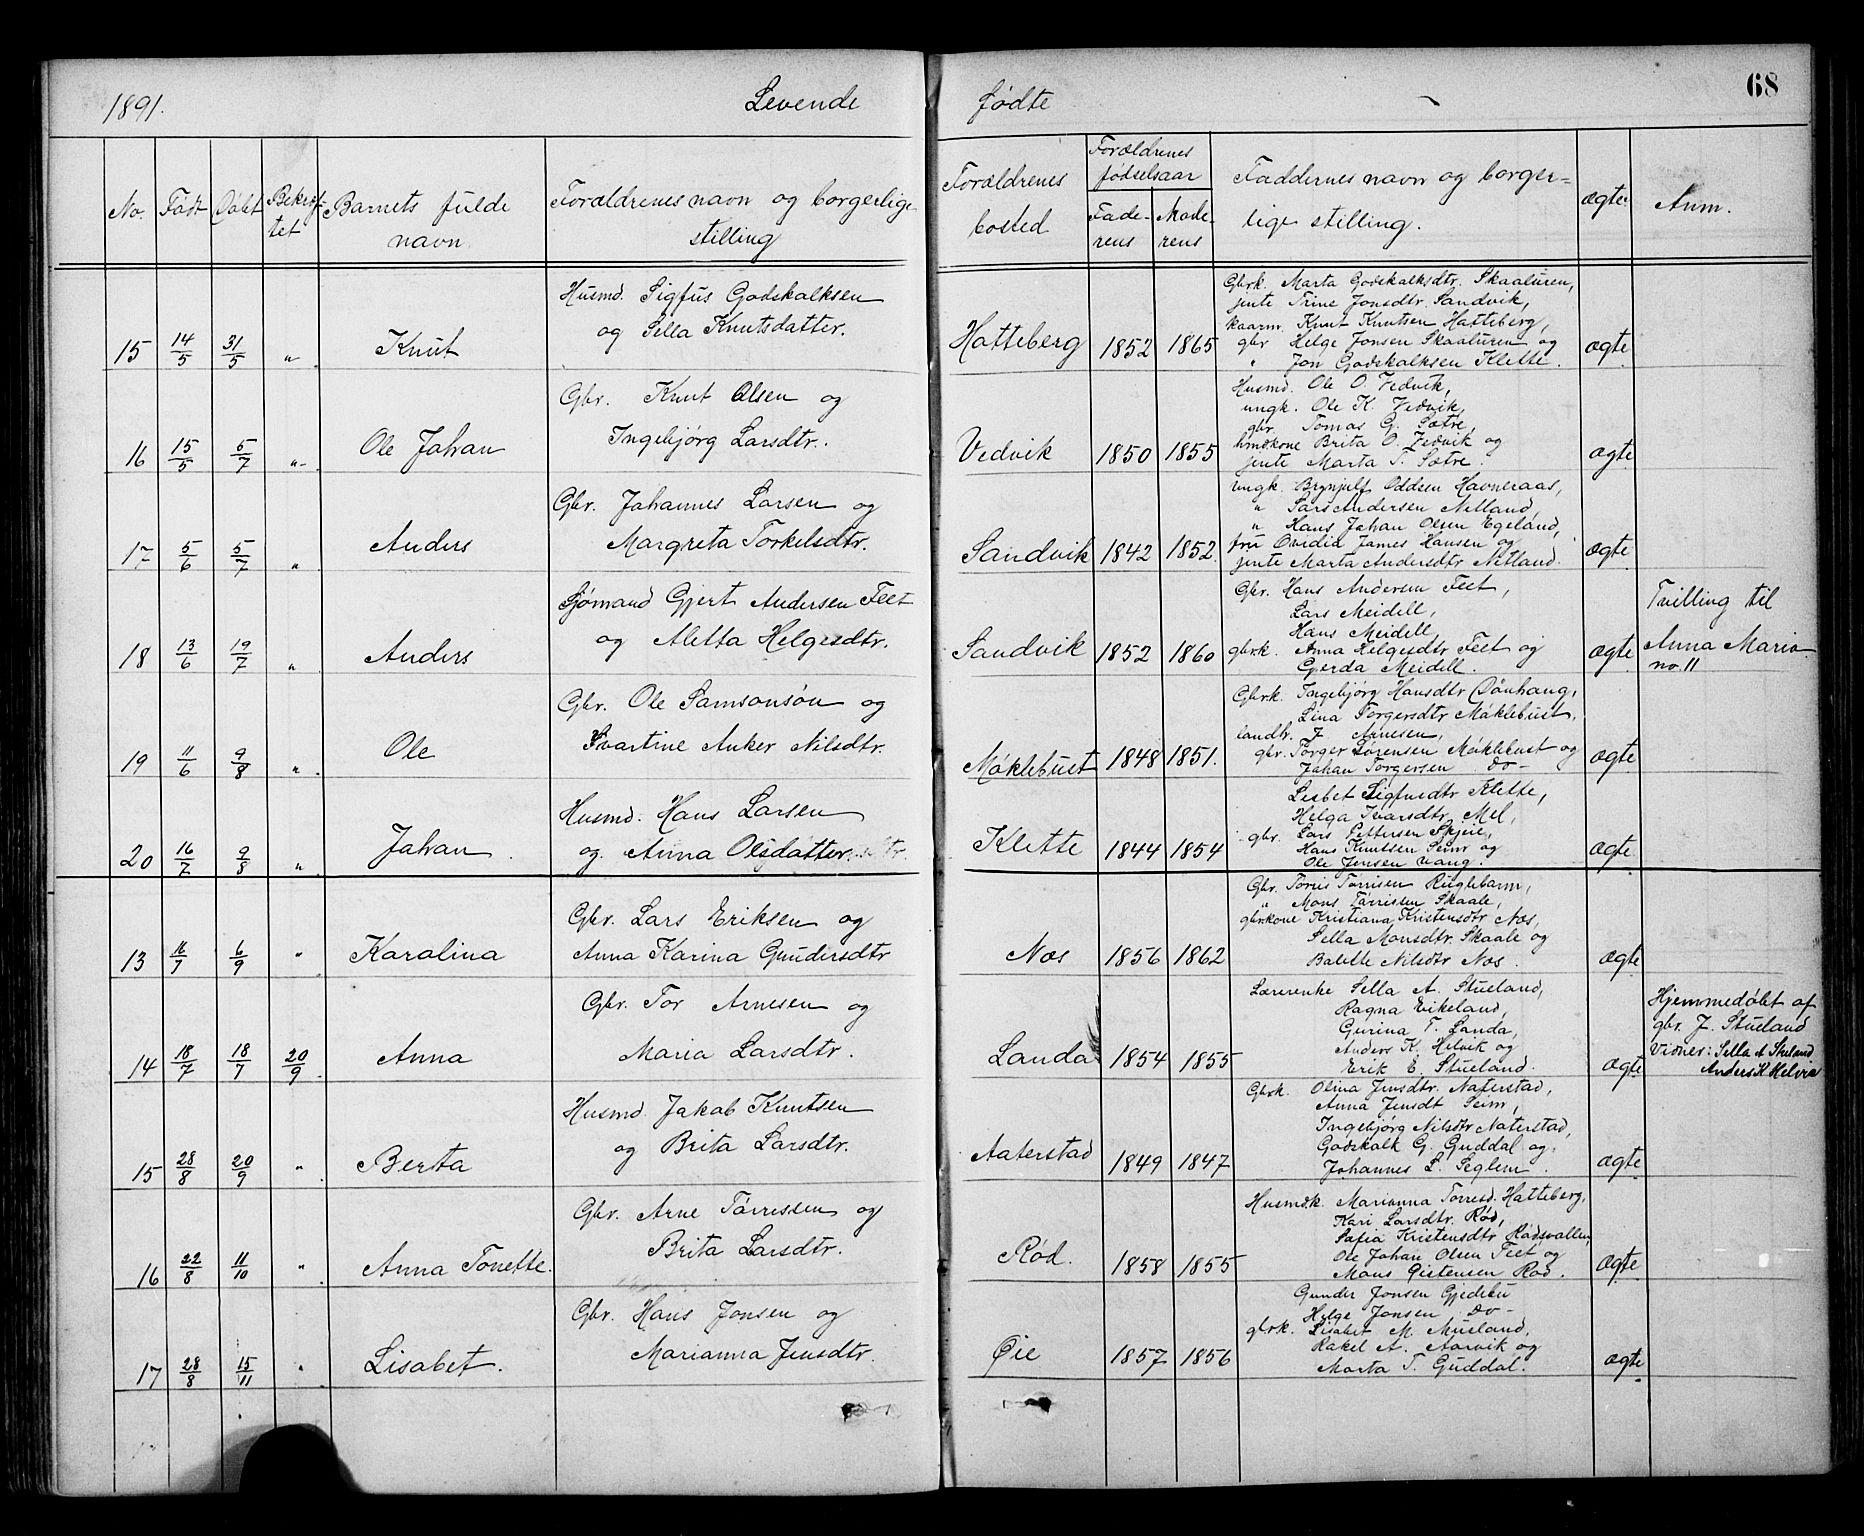 1891.
Levende fødte
68
No.
Født
Døbt
Bekræf-
tet
Barnets fulde
navn.
Forældrenes navn og borgerlige
stilling
Forældrenes
bosted
Forældrenes
fødselsaar
Fade-
rens
Mode-
rens
Faddernes navn og borger-
lige stilling.
ægte
Anm.
15 14/5 31/5 " Knut
Husmd. Sigfus Godskalksen
og Sella Knutsdatter.
Hatteberg 1852 1865
Gbrk. Marta Godskalksdtr. Skaaluren,
jente Trine Jonsdtr. Sandvik,
kaarm. Knut Knutsen Hatteberg,
gbr Helge Jonsen Skaaluren og
" Jon Godskalksen Klette.
ægte
16 15/5 5/7 " Ole Johan
Gbr. Knut Olsen og
Ingebjørg Larsdtr.
Vedvik 1850 1855
Husmd. Ole O. Vedvik,
ungk. Ole K. Vedvik,
gbr Tomas G. Sætre,
hmdkone Brita O. Vedvik og
jente Marta T. Sætre.
ægte
17 5/6 5/7 " Anders
Gbr. Johannes Larsen og
Margreta Torkelsdtr.
Sandvik 1842 1852
ungk. Brynjulf Oddsen Havneraas,
" Lars Andersen Netland,
" Hans Johan Olsen Egeland,
fru Ovidia James Hansen og
jente Marta Andersdtr Netland.
ægte
18 13/6 19/7 " Anders
Sjømand Gjert Andersen Feet
og Aletta Helgesdtr.
Sandvik 1852 1860
Gbr. Hans Andersen Feet,
Lars Meidell,
Hans Meidell,
gbrk. Anna Helgesdtr Feet og
Gjerda Meidell.
ægte
Tvilling til
Anna Maria
no. 11
19 11/6 9/8 " Ole
Gbr. Ole Samsonsøn og
Svartine Anker Nilsdtr.
Møklebust 1848 1851.
Gbrk. Ingebjørg Hansdtr Dønhaug,
Lina Torgersdtr Møklebust,
landhr. J. Arnesen,
gbr. Torger Sørensen Møklebust og
Johan Torgersen do-
ægte
20 16/7 9/8 " Johan
Husmd. Hans Larsen
og Anna Olsdatter
Klette 1844 1854
Lisbet Sigfusdtr Klette,
Helga Ivarsdtr Mel,
gbr. Lars Pettersen Skjeie,
Hans Knutsen Seim og
Ole Jensen Vang.
ægte
13 16/7 6/9 " Karolina
Gbr. Lars Eriksen og
Anna Karina Gundersdtr
Næs 1856 1862
Gbr. Torris Torrisen Ruglebarm,
" Mons Tørrissen Skaale,
gbrkone Kristiana Kristensdtr Næs,
Sella Monsdtr. Skaale og
Balette Nilsdtr Næs.
ægte
14 18/7 18/7 20/9 Anna
Gbr. Tor Arnesen og
Maria Larsdtr.
Landa 1854 1855
Lærerenke Sella A. Stueland,
Ragna Eikeland,
Gurina T. Landa,
Anders K. Helvik og
Erik E. Stueland.
ægte
Hjemmedøbt af
gbr. J. Stueland
Vidner: Sella A Stueland
Anders K Helvik
15 28/8 20/9 " Berta
Husmd. Jakob Knutsen
og Brita Larsdtr.
Naterstad 1849 1847
Gbrk. Olina Jensdtr. Naterstad,
Anna Jensdt Seim,
Ingebjørg Nilsdtr Naterstad,
Godskalk G. Guddal og,
Johannes L. Seglem.
ægte
16 22/8 11/10 " Anna Tonette.
Gbr. Arne Tørressen og
Brita Larsdtr.
Rød. 1858 1855
Husmdk. Marianna Torresd. Hatteberg,
Kari Larsdtr. Rød,
Sofia Kristensdtr Rødsvallen,
Ole Johan Olsen Feet og
Mons Østensen Rød.
ægte
17 28/8 15/11 " Lisabet.
Gbr. Hans Jonsen og
Marianna Jensdtr.
Øie 1857 1856
Gunder Jonsen Gjedebu
Helge Jonsen Do-
gbrk. Lisabet M. Musland,
Rakel A. Aarvik og
Marta T. Guddal.
ægte